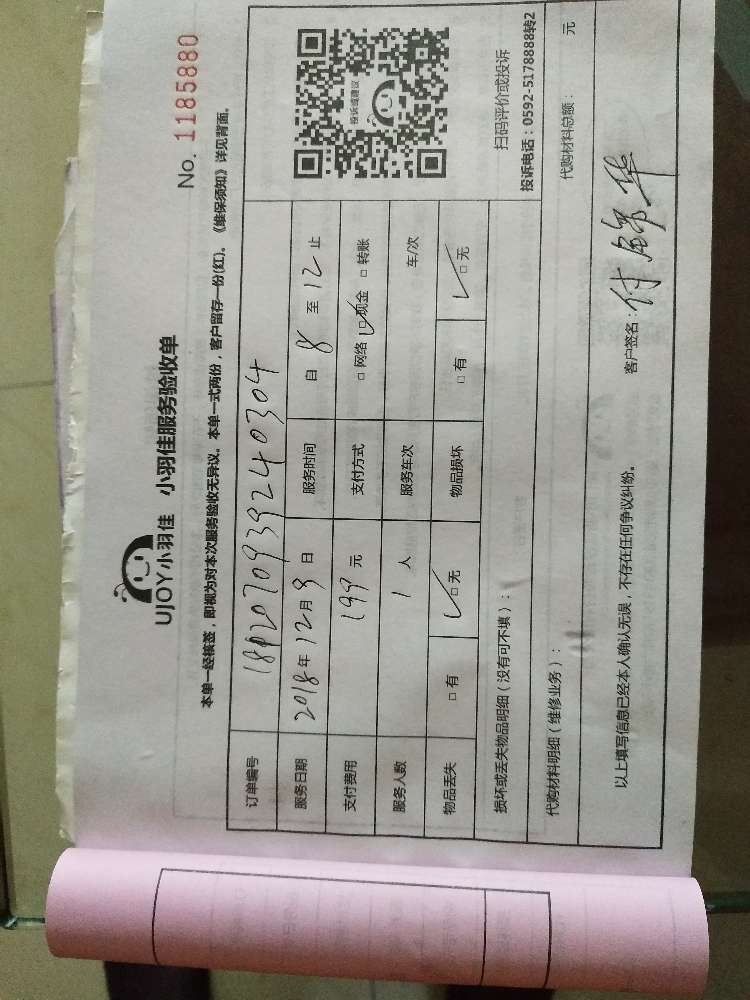 No. 1185880
UJOY小羽佳 小羽佳服务验收单
本单一经核签，即视为对本次服务验收无异议。本单一式两份，客户留存一份(红)。《维保须知》详见背面。
订单编号 1812070939240304
服务日期 2018年12月9日 服务时间 自 8 至 12 止
支付费用 199 元 支付方式 □网络 ☑现金 □转账
服务人数 1 人 服务车次 车/次
物品丢失 □有 ☑无 物品损坏 □有 ☑无
投诉或建议
扫码评价或投诉
投诉电话：0592-5178888转2
损坏或丢失物品明细（没有可不填）：
代购材料明细（维修业务）： 代购材料总额： 元
以上填写信息已经本人确认无误，不存在任何争议纠纷。 客户签名：付